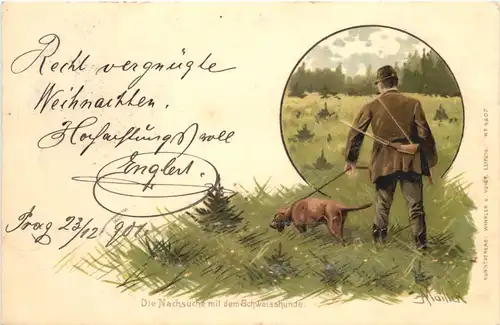 Recht vergnügte
Weihnachten.
Hochachtungsvoll
Englert.
Prag 23/12 901
Die Nachsuche mit dem Schweisshunde.
KUNSTVERLAG WINKLER & VOIGT, LEIPZIG.